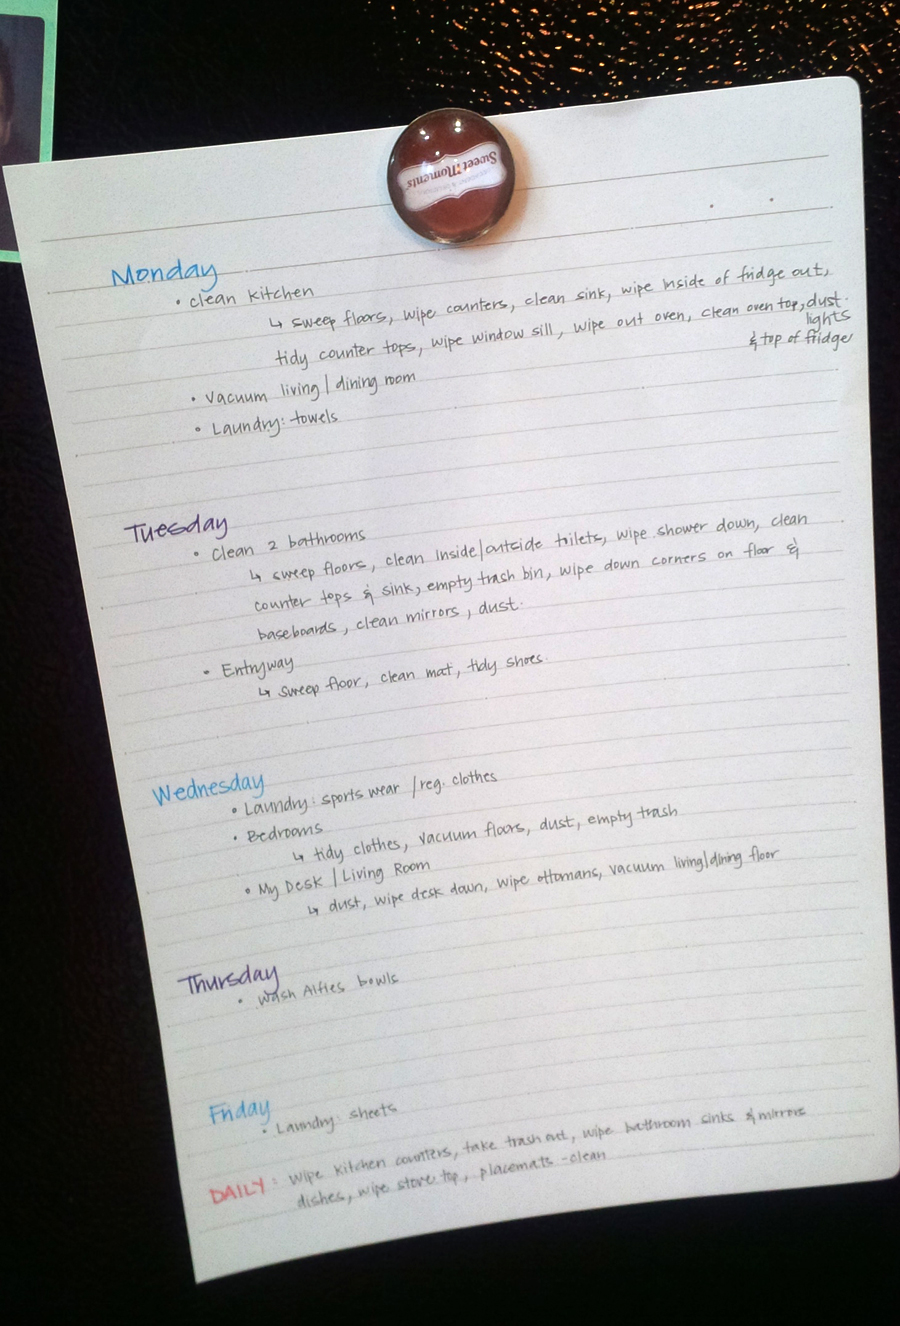 Sweet Moments
Monday
• clean kitchen
↳ sweep floors, wipe counters, clean sink, wipe inside of fridge out,
tidy counter tops, wipe window sill, wipe out oven, clean oven top, dust.
lights
& top of fridge
• Vacuum living/dining room
• Laundry: towels
Tuesday
• Clean 2 bathrooms
↳ sweep floors, clean inside/outside toilets, wipe shower down, clean
counter tops & sink, empty trash bin, wipe down corners on floor &
baseboards, clean mirrors, dust.
• Entryway
↳ sweep floor, clean mat, tidy shoes.
Wednesday
• Laundry: sports wear /reg. clothes
• Bedrooms
↳ tidy clothes, vacuum floors, dust, empty trash
• My Desk / Living Room
↳ dust, wipe desk down, wipe ottomans, vacuum living/dining floor
Thursday
• Wash Alfies bowls
Friday
• Laundry: sheets
DAILY: wipe kitchen counters, take trash out, wipe bathroom sinks & mirrors
dishes, wipe stove top, placemats - clean